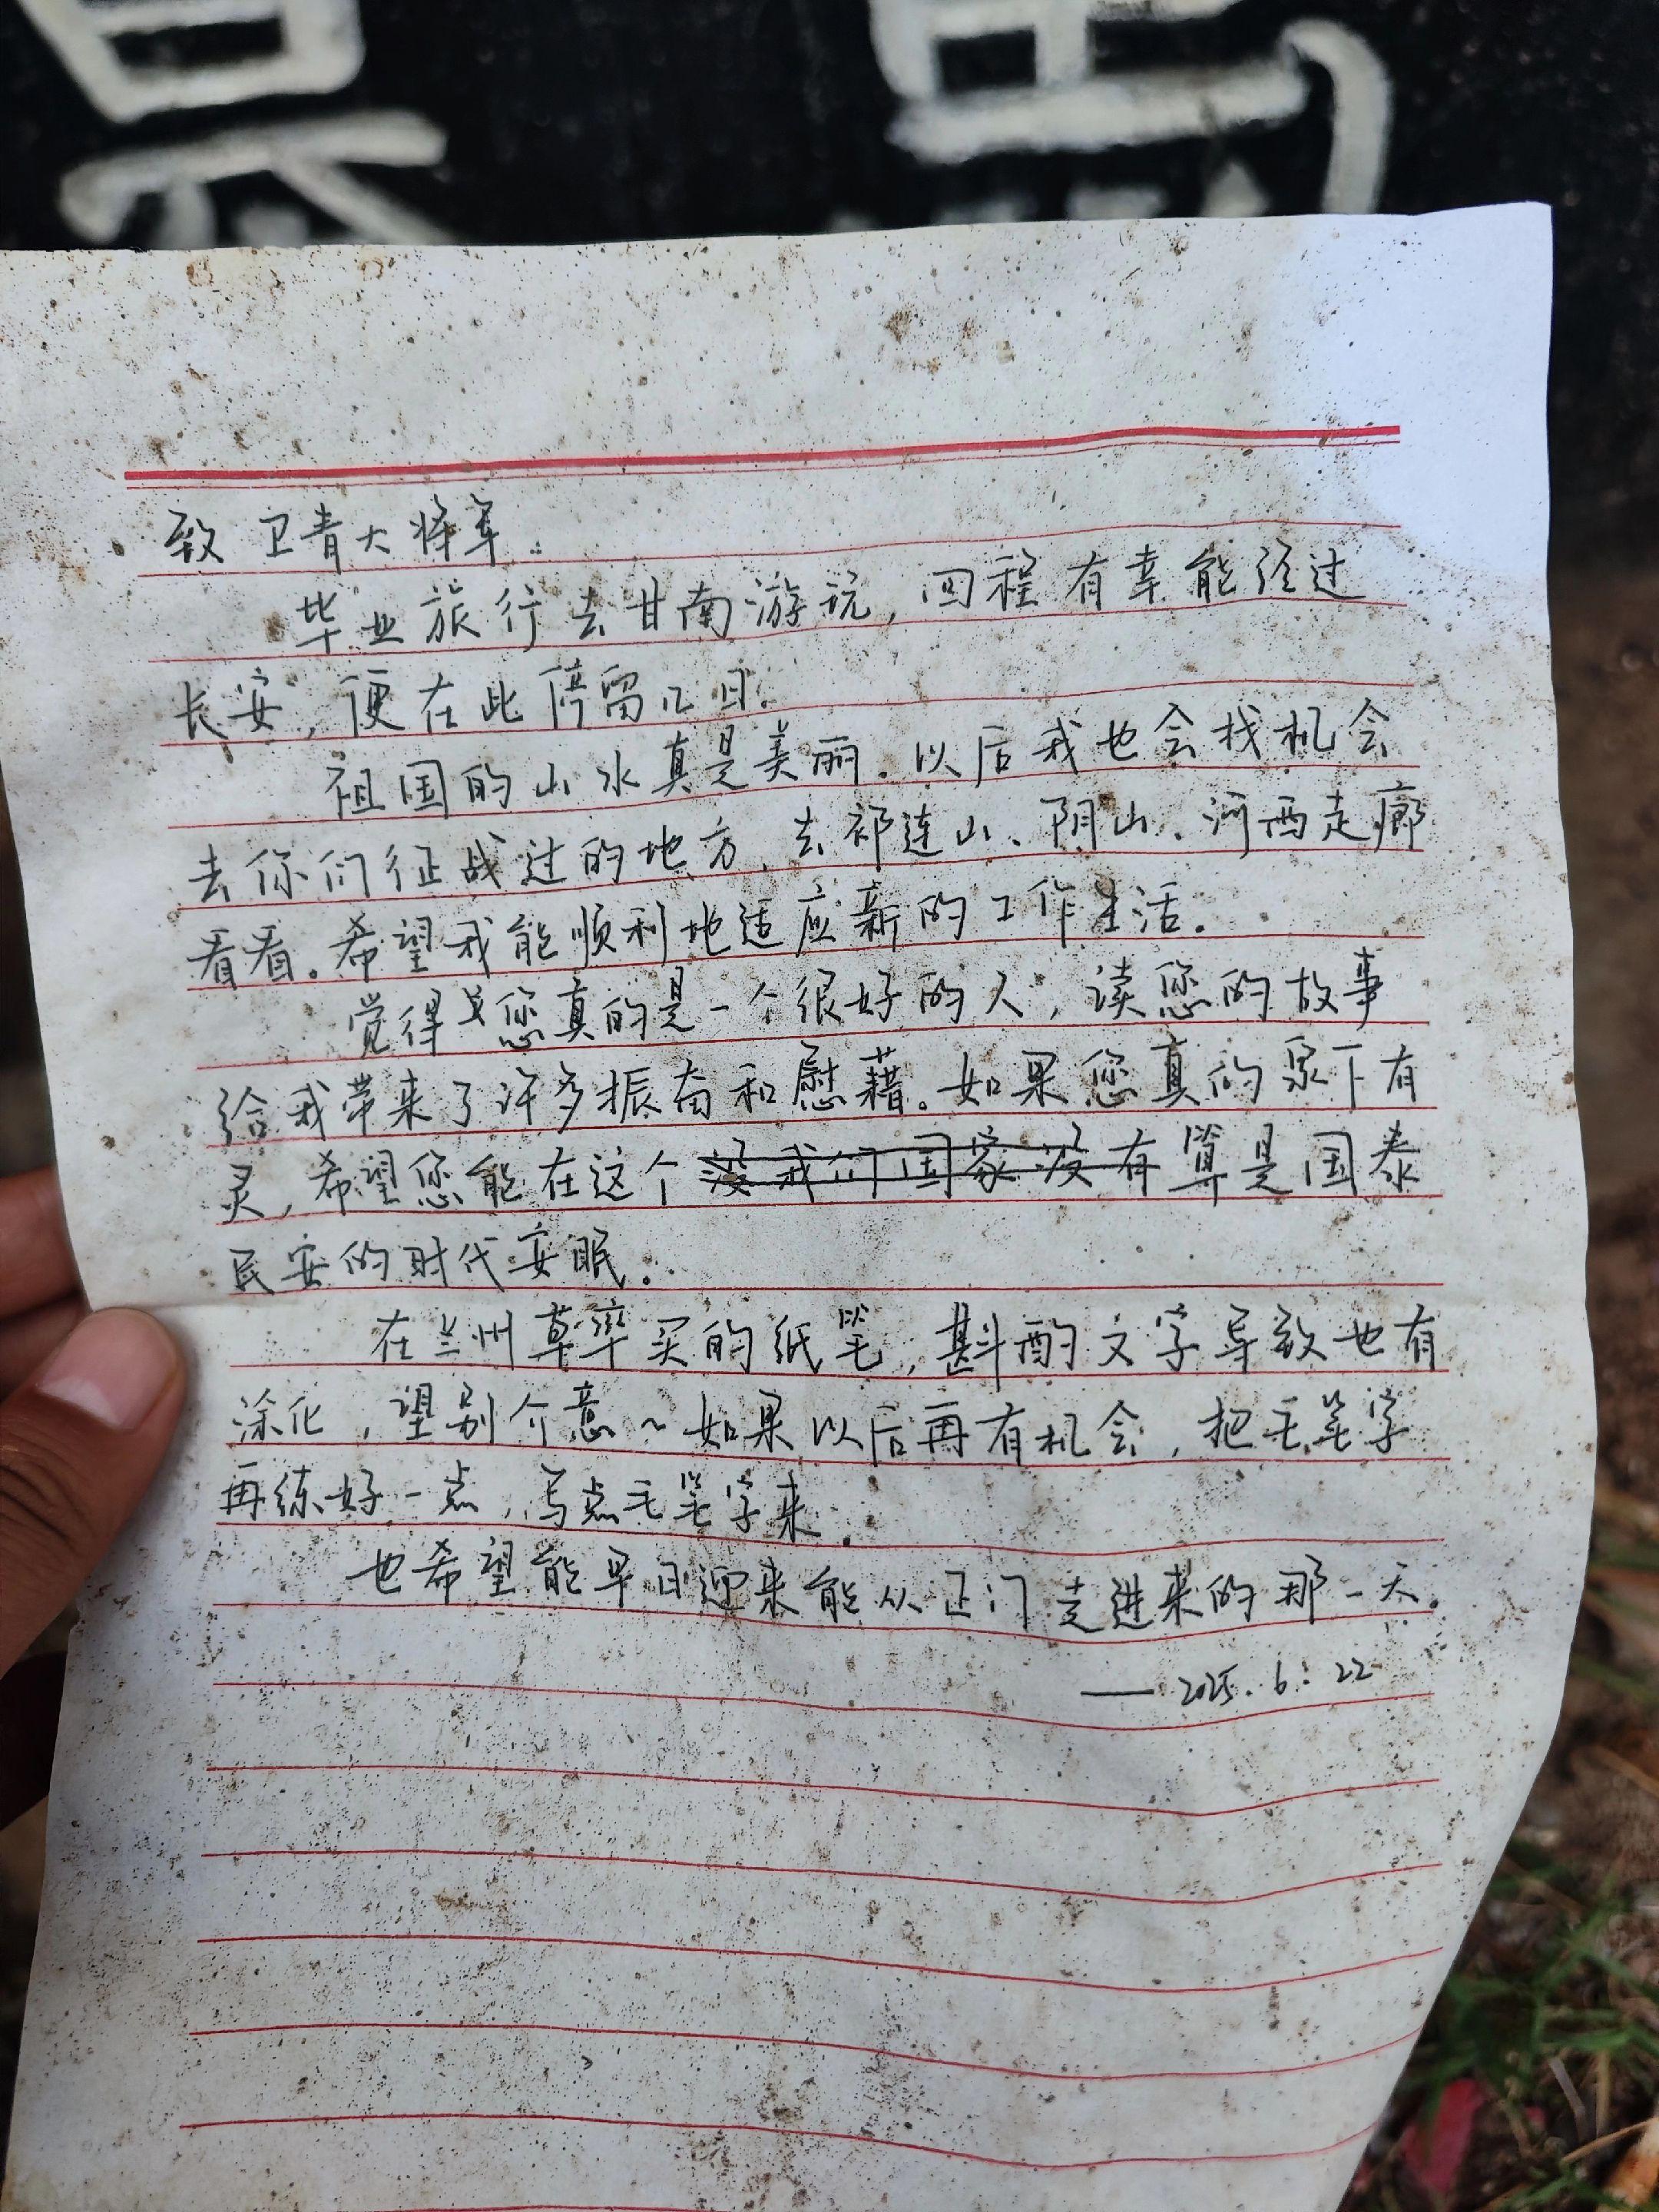 致 卫青大将军:
毕业旅行去甘南游玩,回程有幸能经过
长安,便在此停留几日.
祖国的山水真是美丽.以后我也会找机会
去你们征战过的地方,去祁连山、阴山、河西走廊
看看。希望我能顺利地适应新的工作生活.
觉得 您真的是一个很好的人,读您的故事
给我带来了许多振奋和慰藉。如果您真的泉下有
灵,希望您能在这个没我们国家没有算是国泰
民安的时代安眠.
在兰州草率买的纸笔,斟酌文字导致也有
涂化,望别介意~如果以后再有机会,把毛笔字
再练好一点,写点毛笔字来.
也希望能早日迎来能从正门走进来的那一天。
——2025.6.22